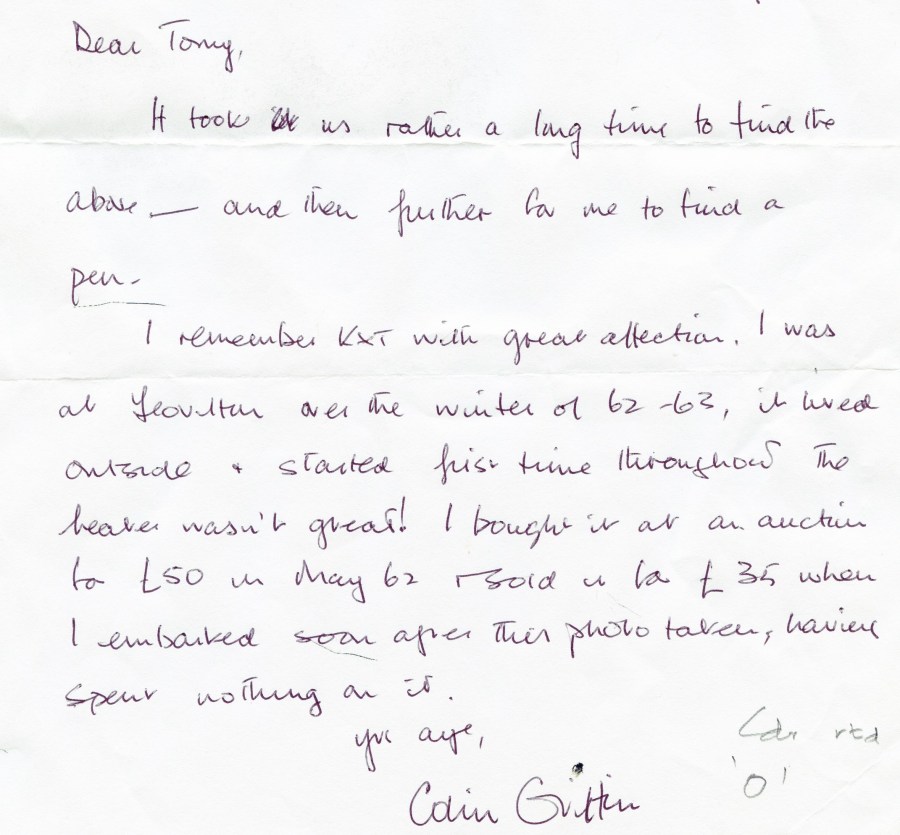 Dear Tony,
It took us rather a long time to find the
above — and then further for me to find a
pen -
I remember KXT with great affection. I was
at Yeovilton over the winter of 62-63, it lived
outside + started first time throughout The
heater wasn't great! I bought it at an auction
for £50 in May 62 + sold it for £35 when
I embarked soon after this photo taken, having
spent nothing on it.
yrs aye,
Cdr rtd
'O'
Colin Griffin